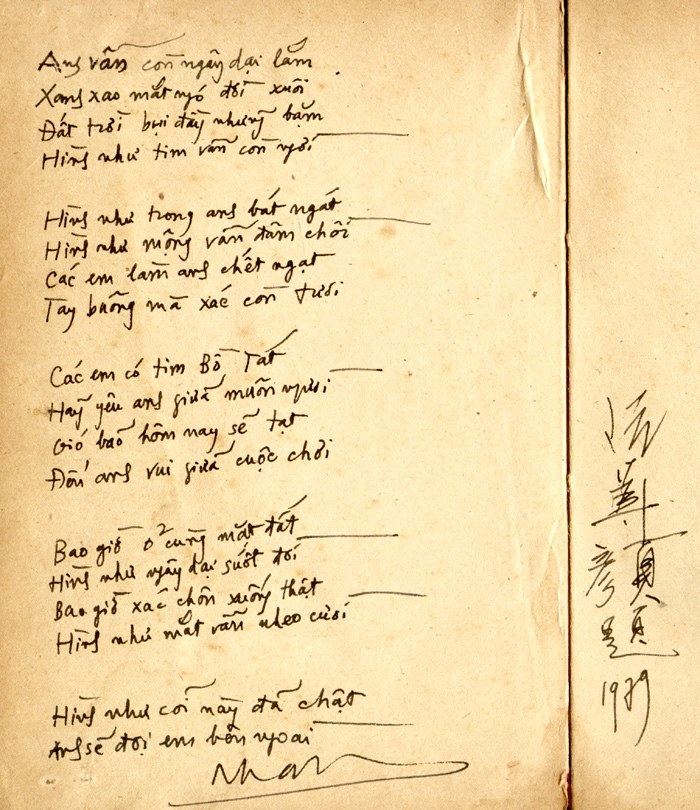 Anh vẫn còn ngây dại lắm
Xanh xao mắt ngó đời xuôi
Đất trời bụi đầy những bặm
Hình như tim vẫn còn
Hình như trong anh bát ngát
Hình như mộng vẫn đâm chồi
Các em làm anh chết ngạt
Tay buông mà xác còn tươi
Các em có tim Bồ Tát
Hãy yêu anh giữa muôn người
Gió bão hôm nay sẽ tạt
Đón anh vui giữa cuộc chơi
Bao giờ ở cùng mặt đất
Hình như ngây dại suốt đời
Bao giờ xác chôn xuống thật
Hình như mắt vẫn nheo cười
Hình như cõi này đã chật
Anh sẽ đợi em bên ngoài
顏
題
1979